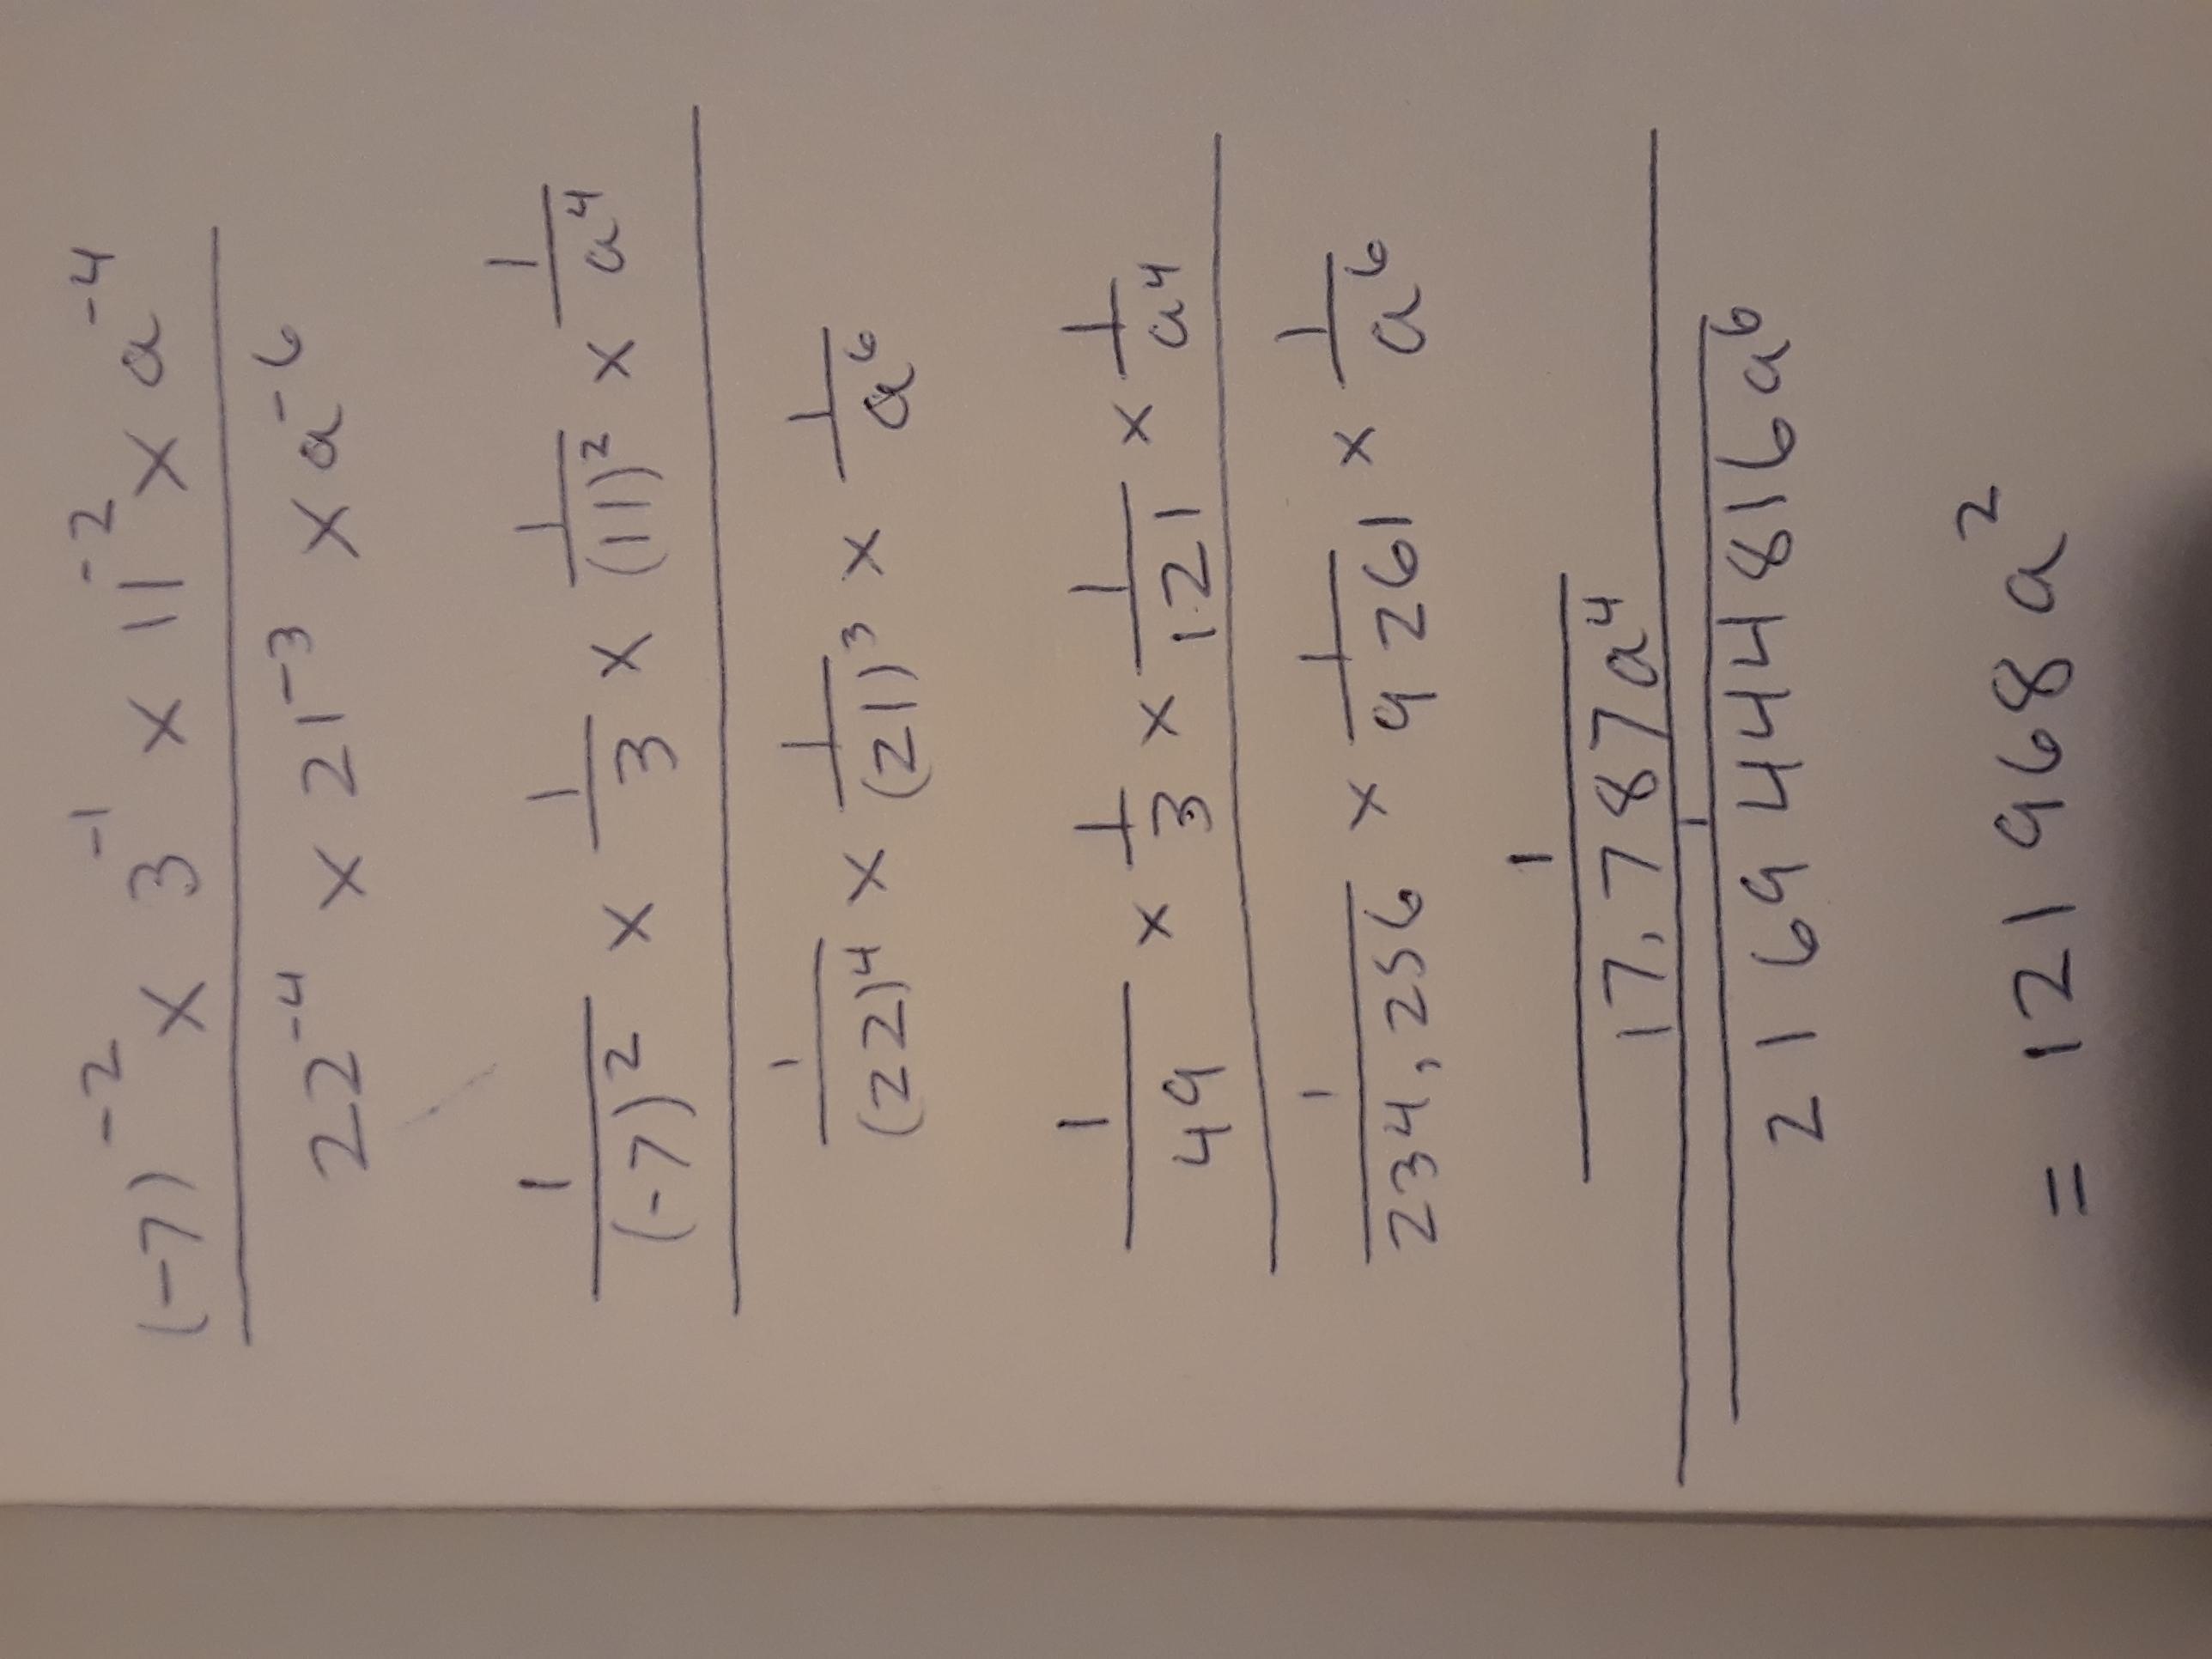 (-7)⁻² × 3⁻¹ × 11⁻² × a⁻⁴
22⁻⁴ × 21⁻³ × a⁻⁶
1/(-7)² × 1/3 × 1/(11)² × 1/a⁴
1/(22)⁴ × 1/(21)³ × 1/a⁶
1/49 × 1/3 × 1/121 × 1/a⁴
1/234,256 × 1/9261 × 1/a⁶
1
17,787a⁴
1
2169444816a⁶
= 121968a²